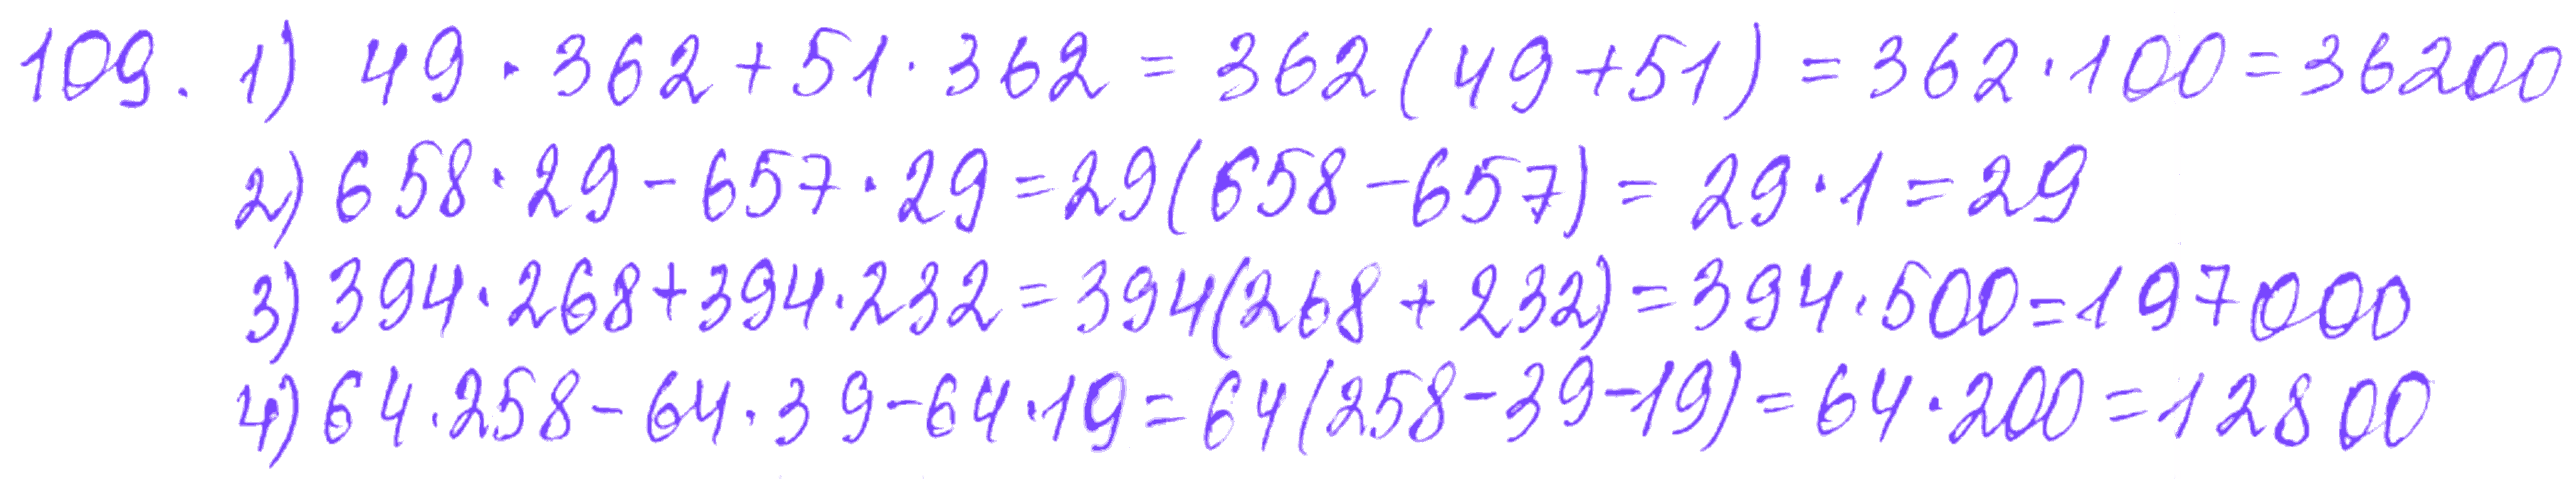 109. 1) 49 · 362 + 51 · 362 = 362 ( 49 + 51 ) = 362 · 100 = 36200
2) 658 · 29 - 657 · 29 = 29 ( 658 - 657 ) = 29 · 1 = 29
3) 394 · 268 + 394 · 232 = 394 ( 268 + 232 ) = 394 · 500 = 197000
4) 64 · 258 - 64 · 39 - 64 · 19 = 64 ( 258 - 39 - 19 ) = 64 · 200 = 12800